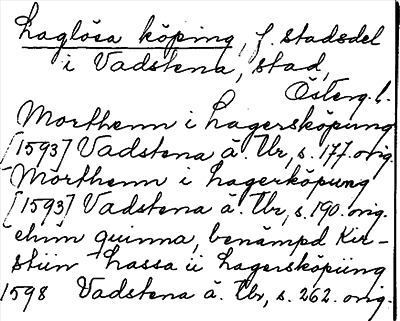 Laglösa köping, f. stadsdel
i Vadstena, stad,
Österg. l.
Morthenn i Lagersköpung
[1593] Vadstena ä. Tb, s. 177. orig.
Mörthenn i Lagerköpung
[1593] Vadstena ä. Tb, s. 190. orig.
ehnn quinna, benämpd Kir-
stiin Lassa ü Lagersköpüng
1598 Vadstena ä. Tb, s. 262. orig.